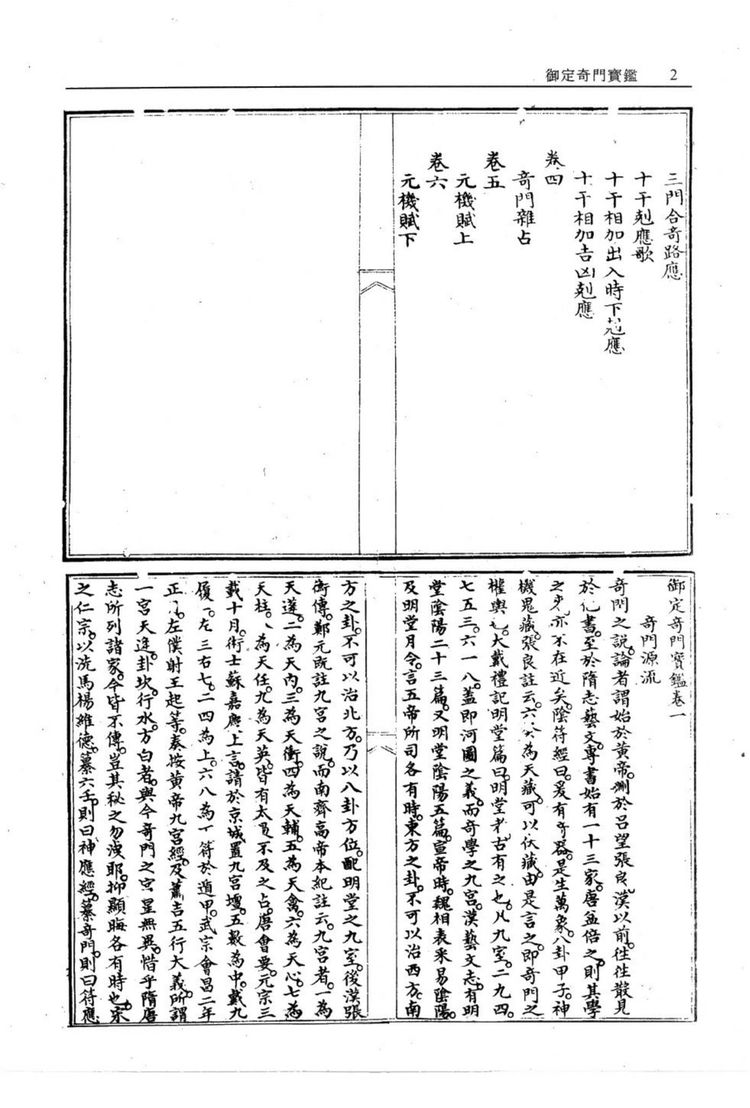 御定奇門寳鑑 2
三門合奇路應
十干剋應歌
十干相加出入時下剋應
十干相加吉凶剋應
卷四
奇門雜占
卷五
元機賦上
卷六
元機賦下
御定奇門寳鑑卷一
奇門源流
奇門之説論者謂始於黄帝刪於呂望張良漢以前往往散見
於他書至於隋志藝文專書始有一十三家唐益倍之則其學
之來亦不在近矣陰符經曰爰有奇器是生萬象八卦甲子神
機鬼藏張良註云六癸為天藏可以伏藏由是言之即奇門之
權輿也大戴禮記明堂篇曰明堂者古有之也凡九室二九四
七五三六一八蓋即河圖之義而奇學之九宮漢藝文志有明
堂陰陽二十三篇又明堂陰陽五篇宣帝時魏相表采易陰陽
及明堂月令言五帝所司各有時東方之卦不可以治西方南
方之卦不可以治北方乃以八卦方位配明堂之九室後漢張
衡傳鄭元既註九宮之說而南齊高帝本紀註云九宮者一為
天蓬二為天內三為天衝四為天輔五為天禽六為天心七為
天柱八為天任九為天英皆有太過不及之占唐會要元宗三
載十月術士蘇嘉慶上言請於京城置九宮壇五數為中戴九
履一左三右七二四為上六八為下符於遁甲武宗會昌二年
正月左僕射王起等奏按黄帝九宮經及蕭吉五行大義所謂
一宮天逢卦坎行水方白者與今奇門之宮星無異惜乎隋唐
志所列諸家今皆不傳豈其秘之勿洩耶抑顯晦各有時也宋
之仁宗以洗馬楊維德纂六壬則曰神應經纂奇門則曰符應